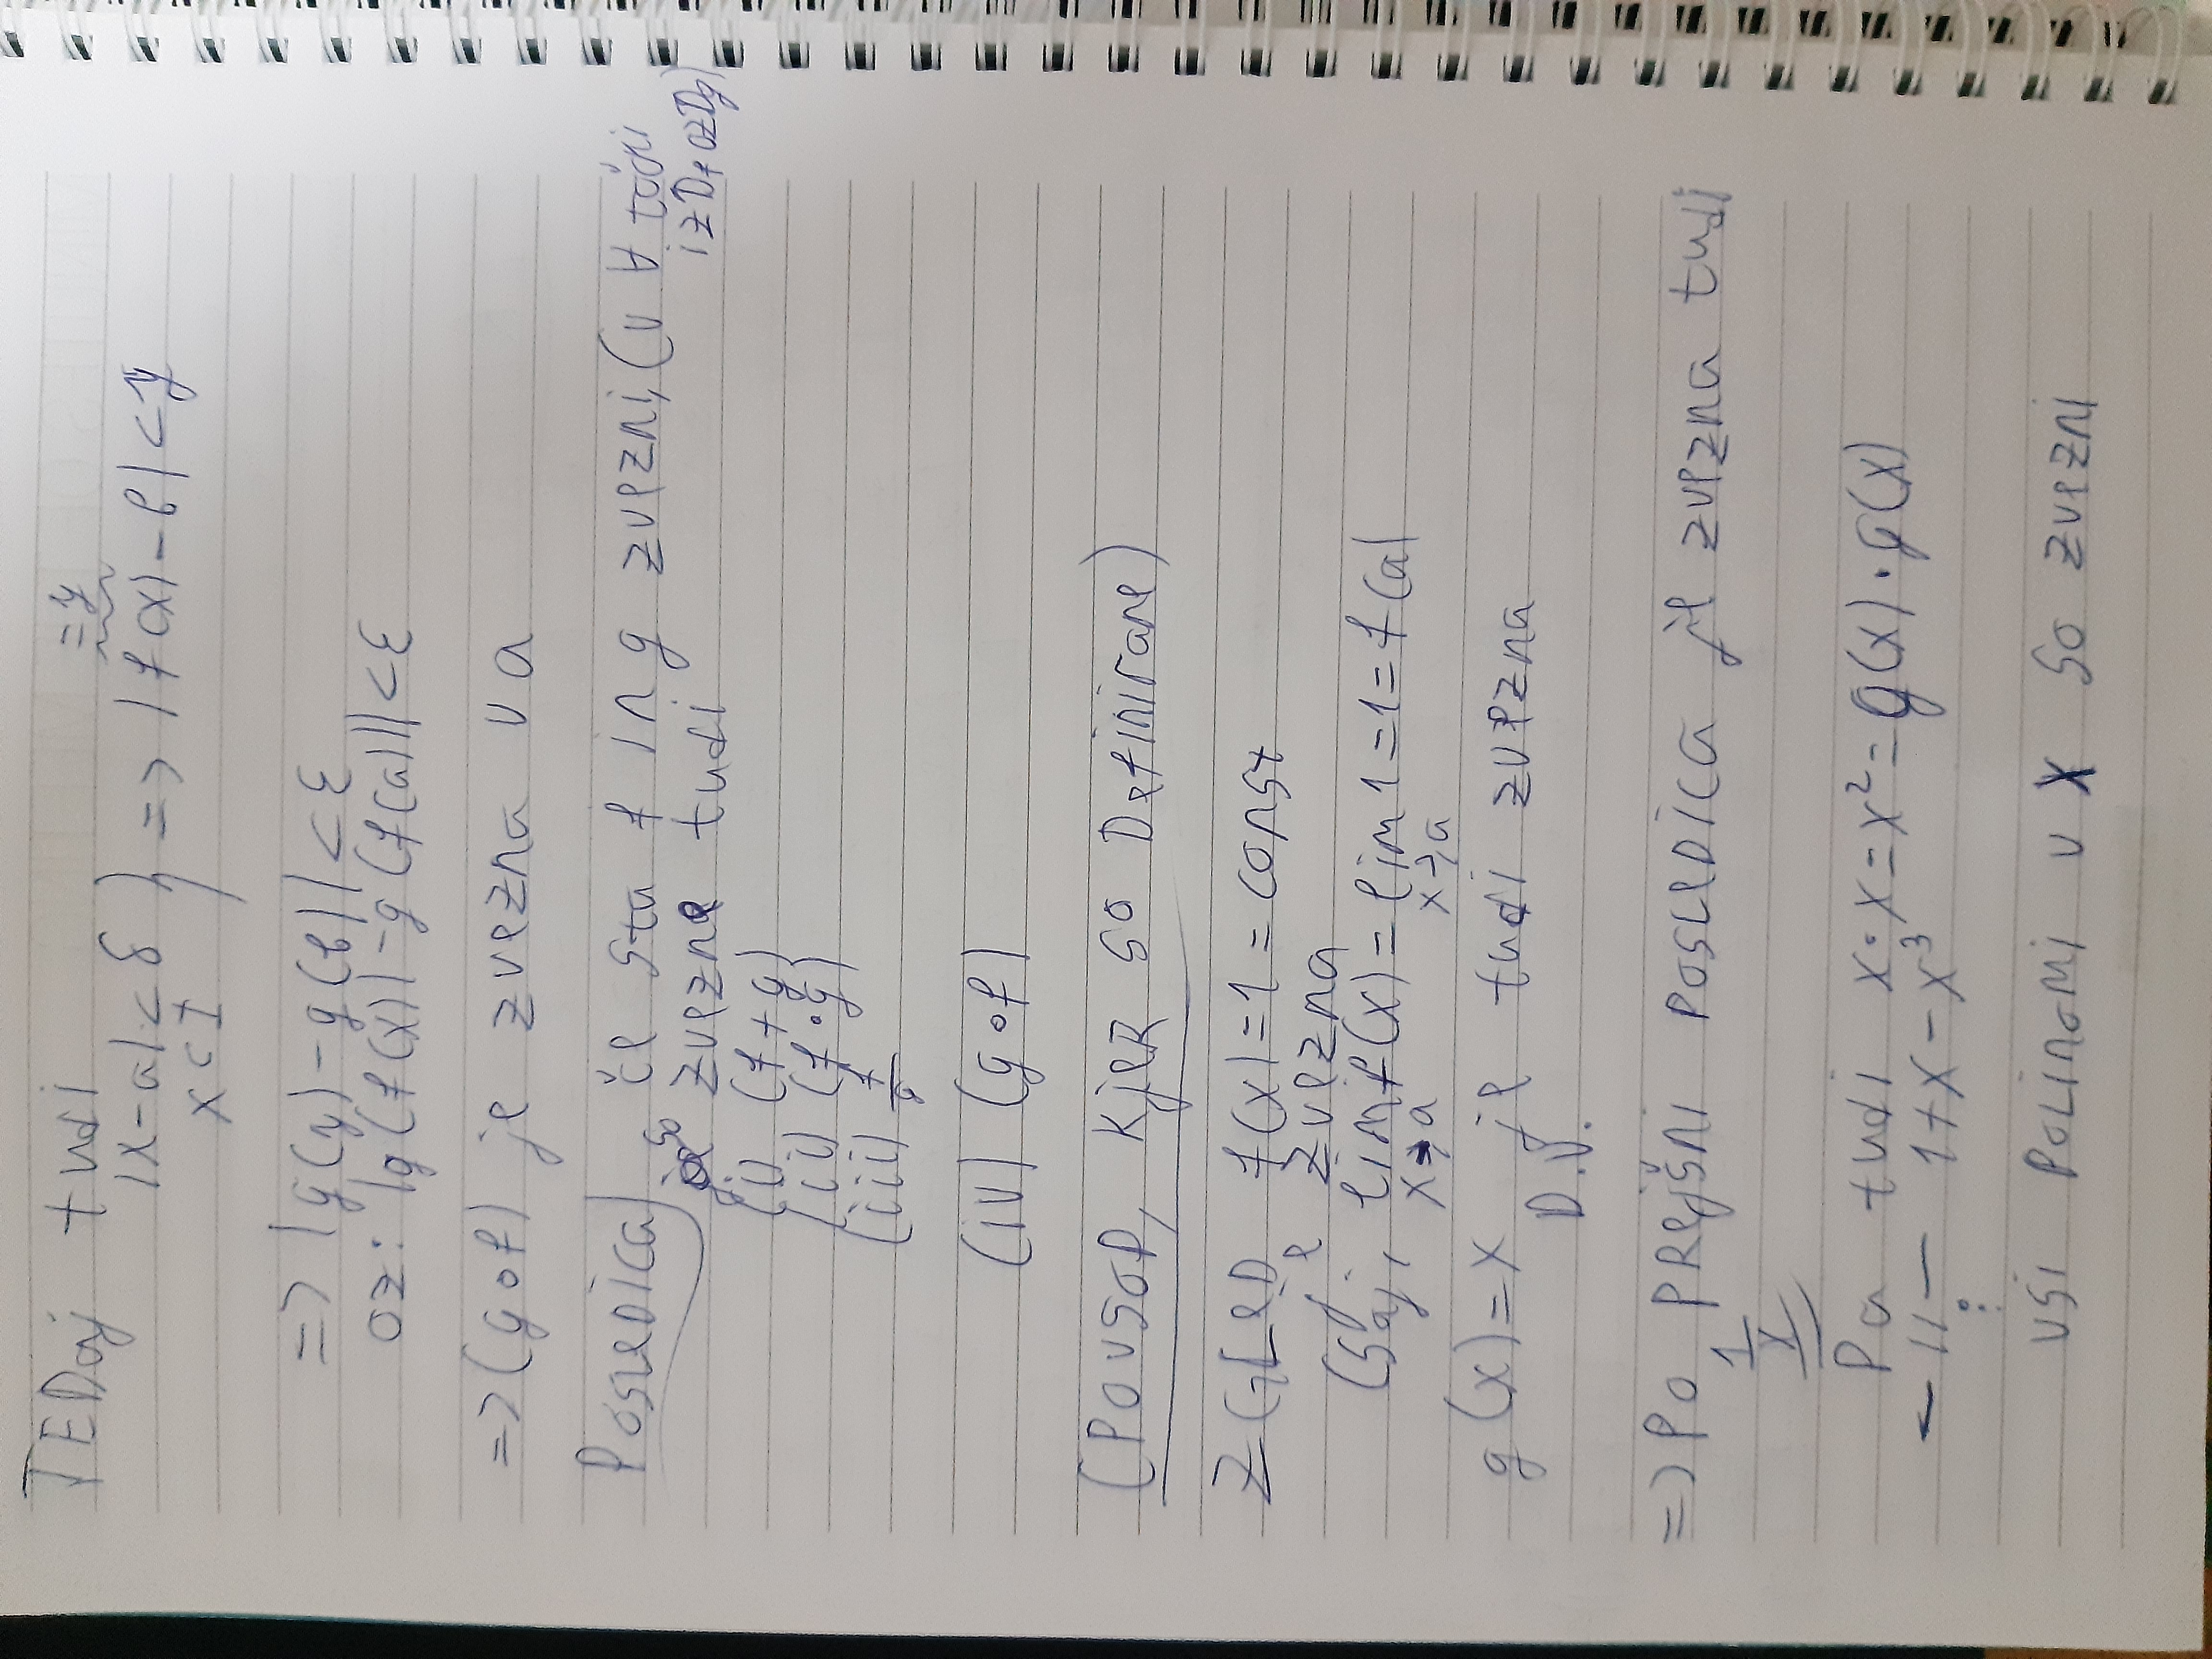 TEDaj tudi
=y
|x-a|<δ } => |f(x)-b|<y
x ⊂ I
=> |g(y)-g(b)|<ε
oz: |g(f(x))-g(f(a))|<ε
=> (g∘f) je zvezna v a
Posledica) če sta f in g zvezni, (v ∀ točki
iz Df oz Dg)
so zvezne tudi
(i) (f+g)
(ii) (f·g)
(iii) f/g
(iv) (g∘f)
(POVSOD, kjer so Definirane)
ZGLeD f(x)=1=const
je zvezna
(Saj, lim f(x)=lim 1=1=f(a)
x→a x→a
g(x)=x je tudi zvezna
D.V.
=> Po PRejšni Posledica je zvezna tudi
1/x
Pa tudi x·x=x²=g(x)·g(x)
—11— 1+x-x³
⋮
vsi Polinomi v x so zvezni